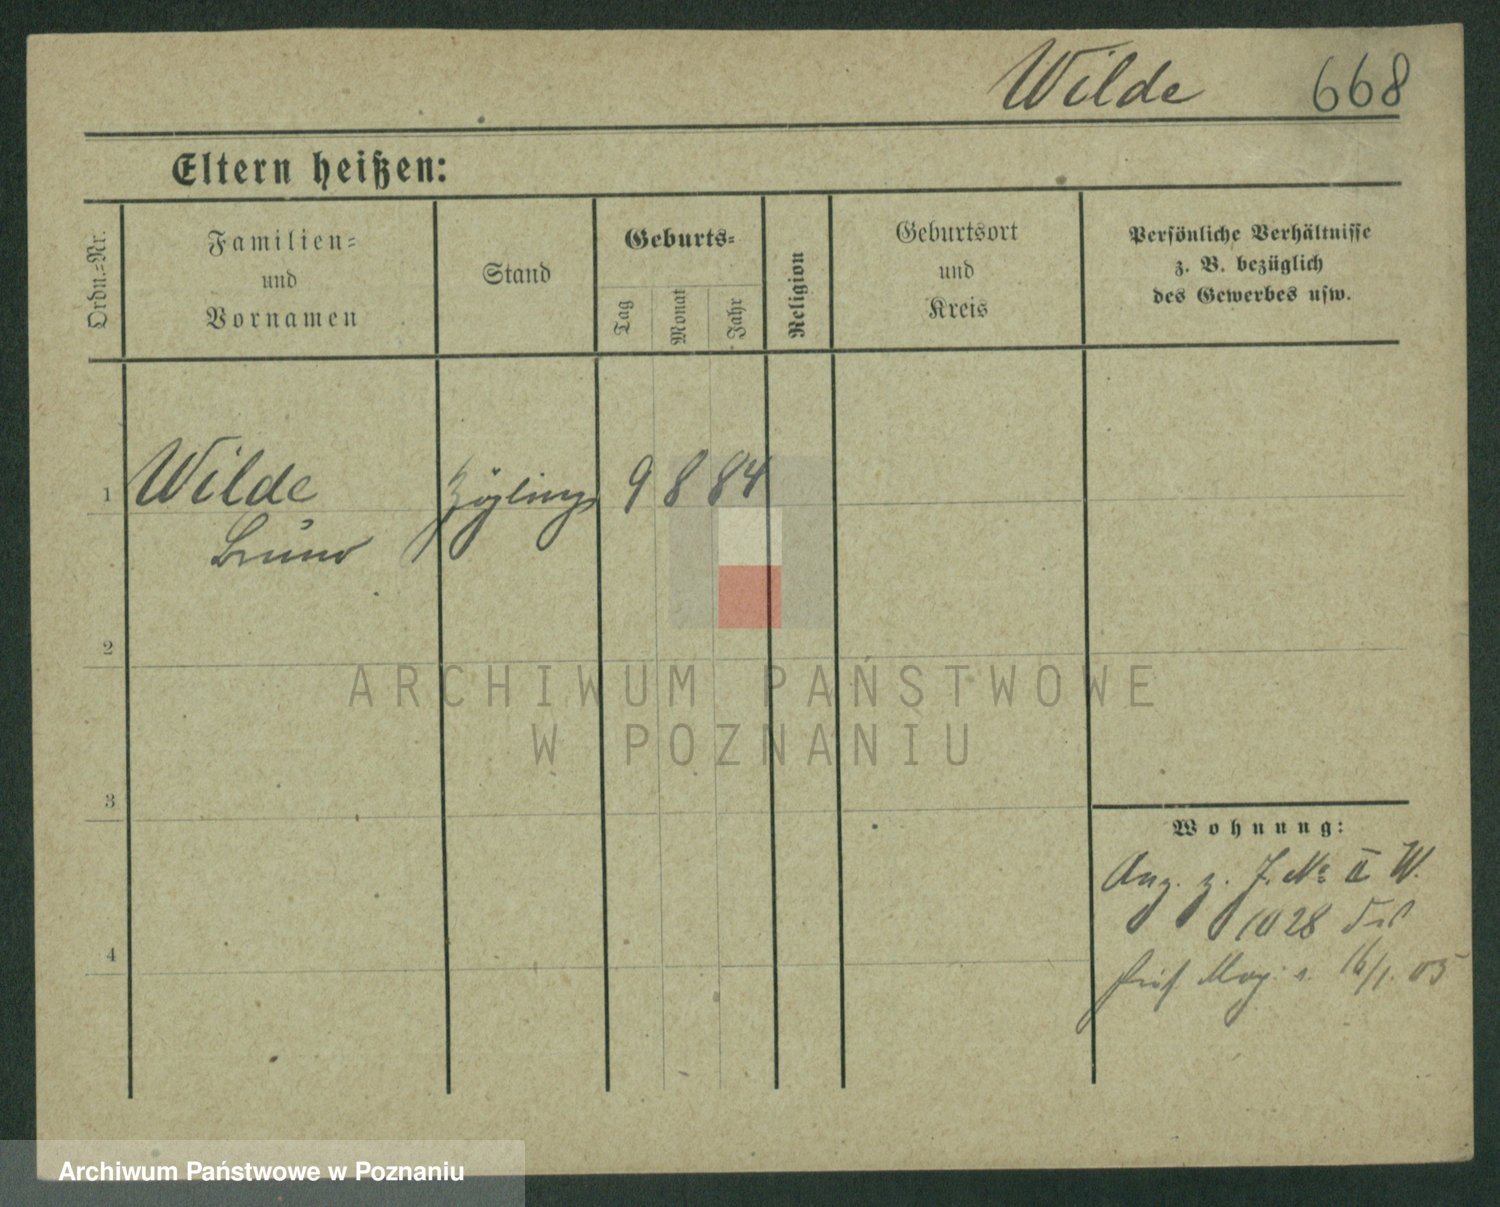 Wilde 668
Eltern heißen:
Ordn.-Nr.
Familien-
und
Vornamen
Stand
Geburts-
Tag
Monat
Jahr
Religion
Geburtsort
und
Kreis
Persönliche Verhältnisse
z. B. bezüglich
des Gewerbes usw.
1 Wilde Zögling 9 8 84
Bruno
2
3
4
Wohnung:
Ang. z. J. No II W.
1028
Mag. 16/1. 05
ARCHIWUM PAŃSTWOWE
W POZNANIU
Archiwum Państwowe w Poznaniu